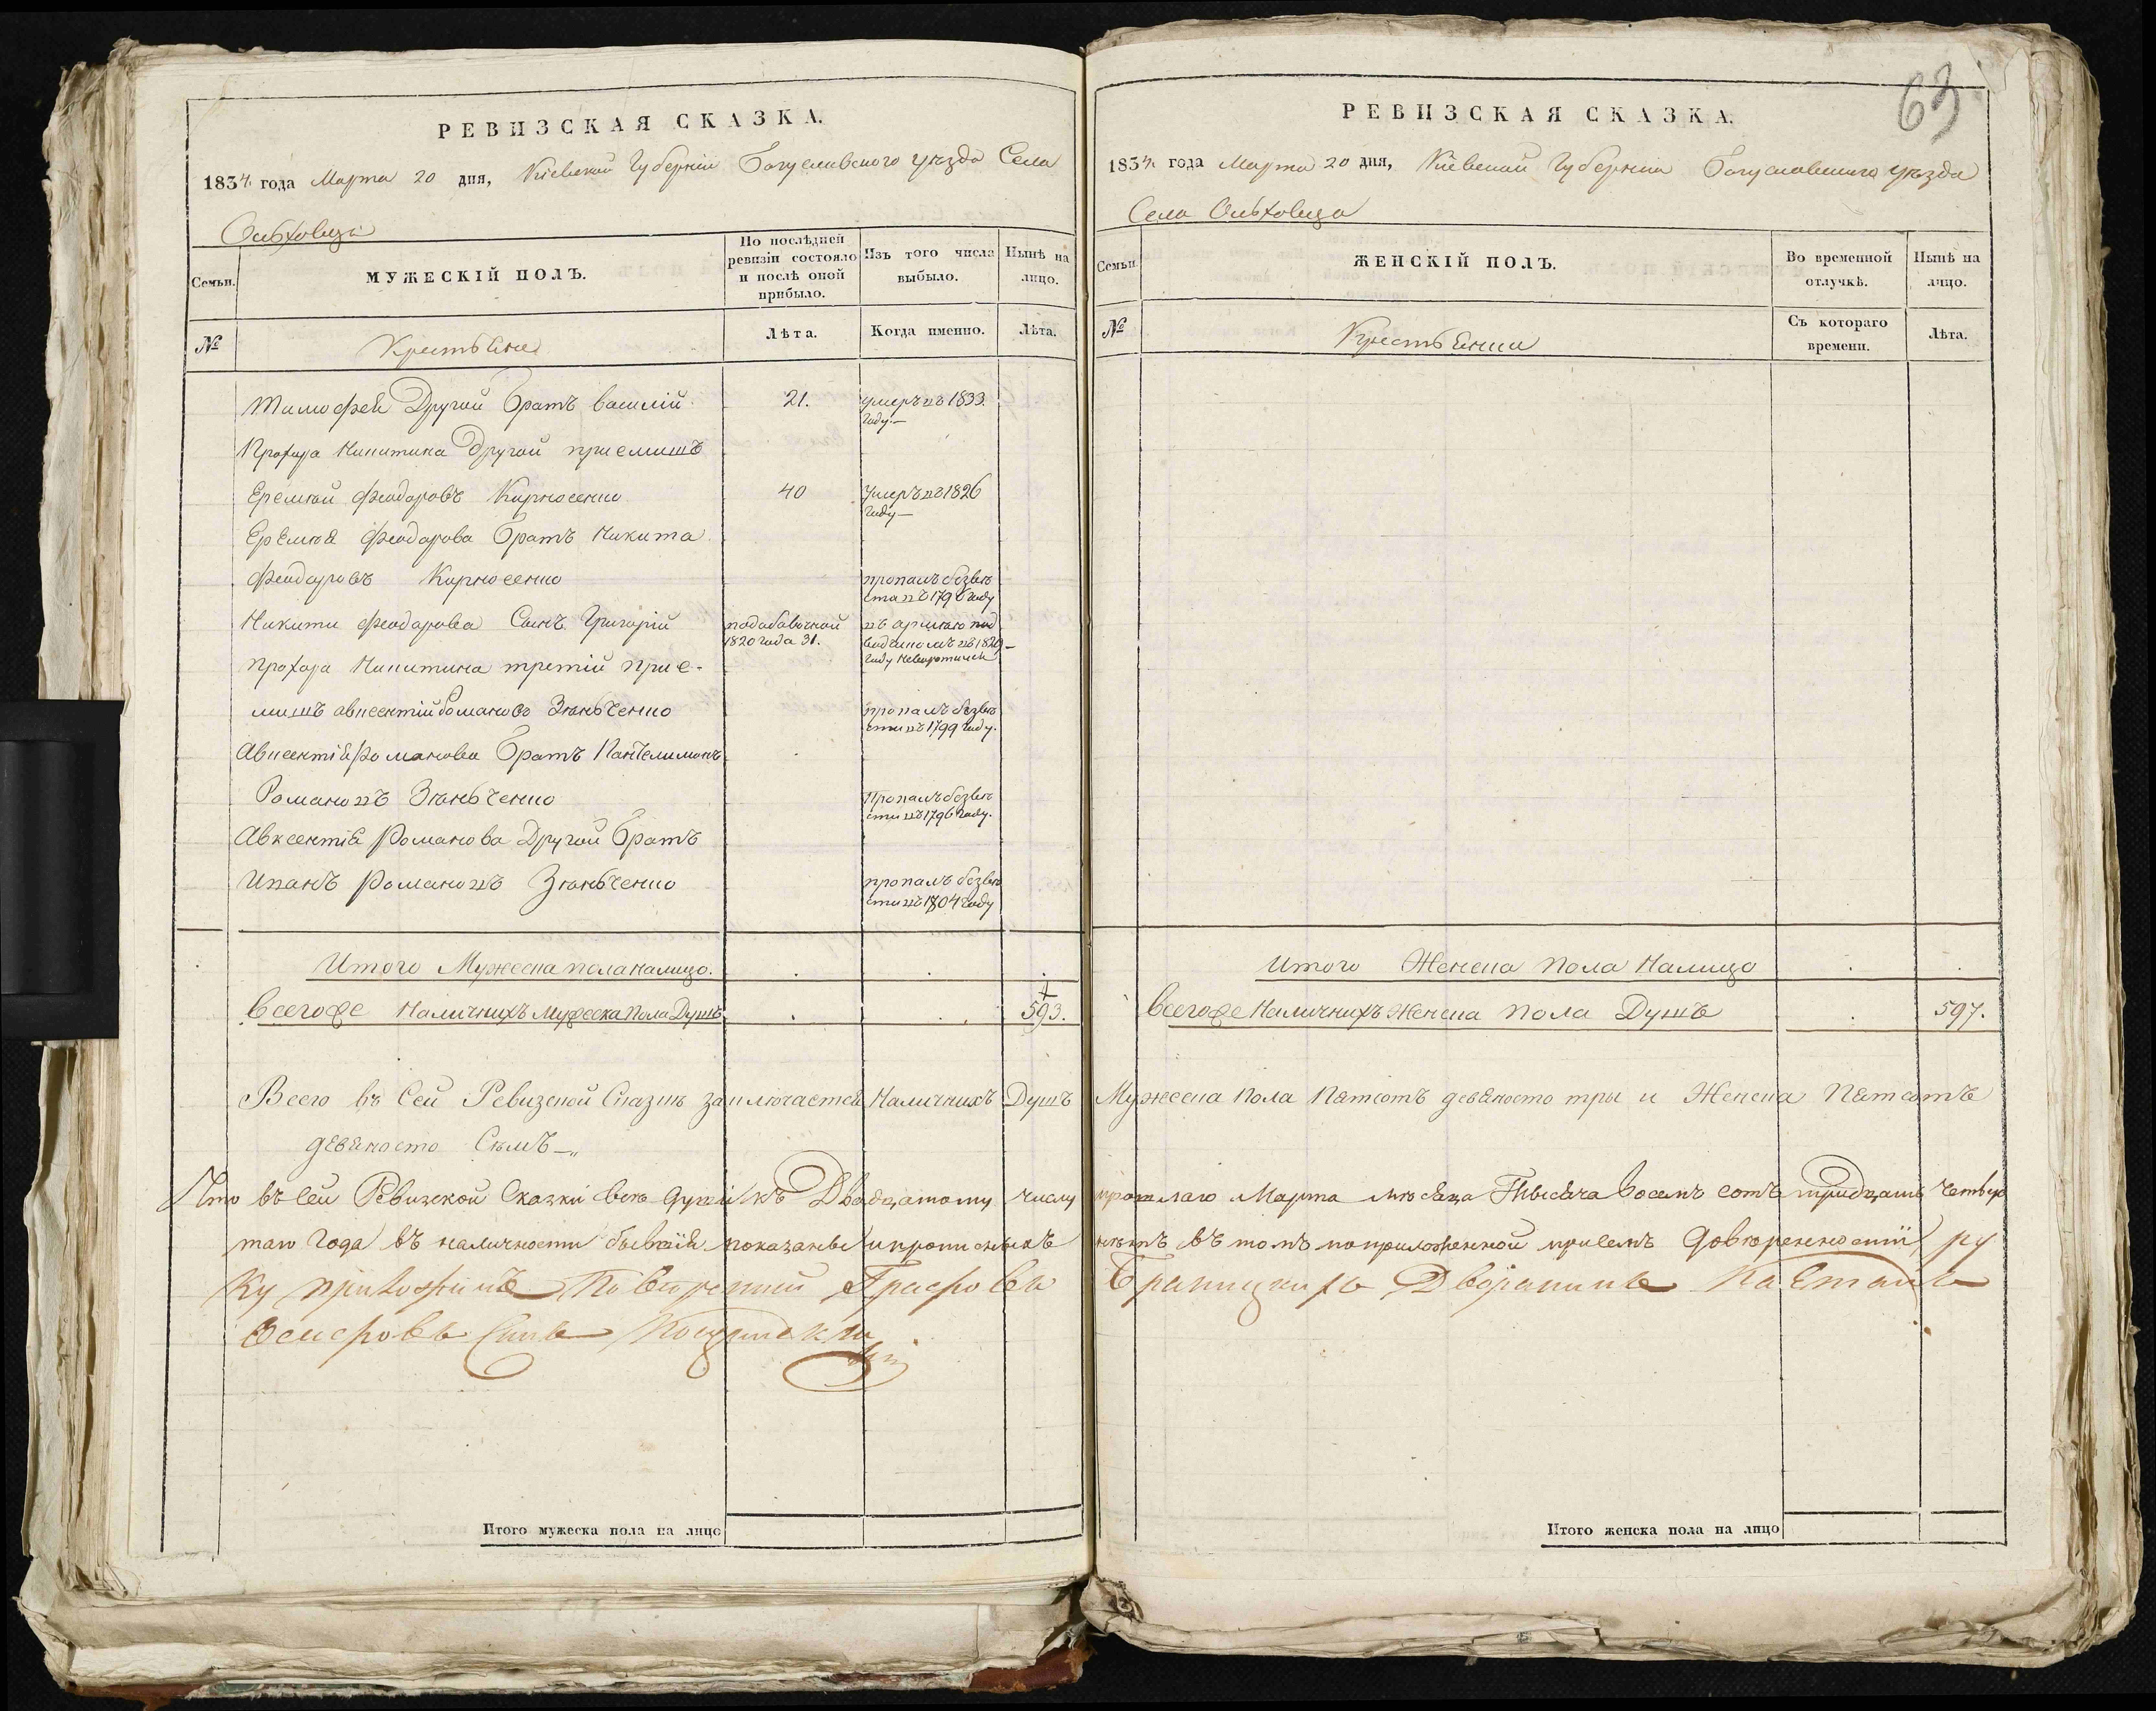 63
РЕВИЗСКАЯ СКАЗКА.
1834 года Марта 20 дня, Кіевской Губерніи Богуславского уѣзда Села
Ольховца
Семьи.
МУЖЕСКІЙ ПОЛЪ.
По послѣдней ревизіи состояло и послѣ оной прибыло.
Изъ того числа выбыло.
Нынѣ на лицо.
№
Крестьяне
Лѣта.
Когда именно.
Лѣта.
Тимофей Другой Братъ василій 21. умеръ въ 1833.
году.—
Прохора Никитина Другой приемишъ
Еремѣй Феодоровъ Кирносенко 40 Умеръ въ 1826
году—
Еремѣя Феодорова Братъ Никита
Феодоровъ Кирносенко пропалъ безвѣ
ста въ 1796 году
Никити Феодорова Синъ Григорій подобавочной въ армѣю под
1820 года 31. въ 1829
году
Прохора Никитина третій прие-
мишъ авксентій Романовъ Зѣньченко пропалъ безвѣ
сти въ 1799 году.
Авксентія Романова Братъ Пантелимонъ
Романовъ Зѣньченко Пропалъ безвѣ
сти въ 1796 году.
Авксентія Романова Другой Братъ
Иванъ Романовъ Зѣньченко пропалъ безвѣ
сти въ 1804 году
Итого Мужеска пола налицо.
всегоже Наличнихъ мужеска Пола Душъ 593.
РЕВИЗСКАЯ СКАЗКА.
1834 года Марта 20 дня, Кіевской Губерніи Богуславского уѣзда
Села Ольховца
Семьи
ЖЕНСКІЙ ПОЛЪ.
Во временной отлучкѣ.
Нынѣ на лицо.
№
Крестьянки
Съ котораго времени.
Лѣта.
Итого Женска Пола Налицо
всегоже Наличнихъ Женска Пола Душъ 597.
Всего въ Сей Ревизской Сказкѣ заключается Наличнихъ Душъ Мужеска Пола Пятсотъ девяносто три и Женска Пятсотъ
девяносто Сѣмъ—„
Что въ сей Ревизской Сказки всѣ души къ Двадцатому числу прошлаго Марта мѣсяца Тысяча восемъ сотъ тридцать четвер
таго года въ наличности бывшія показаны и прописныхъ нѣтъ въ томъ по приложенной присемъ довѣренности ру
ку приложилъ Повѣренный Графовъ Браницкихъ Дворянинъ Каетанъ
Осиповъ Синъ
Итого мужеска пола на лицо
Итого женска пола на лицо